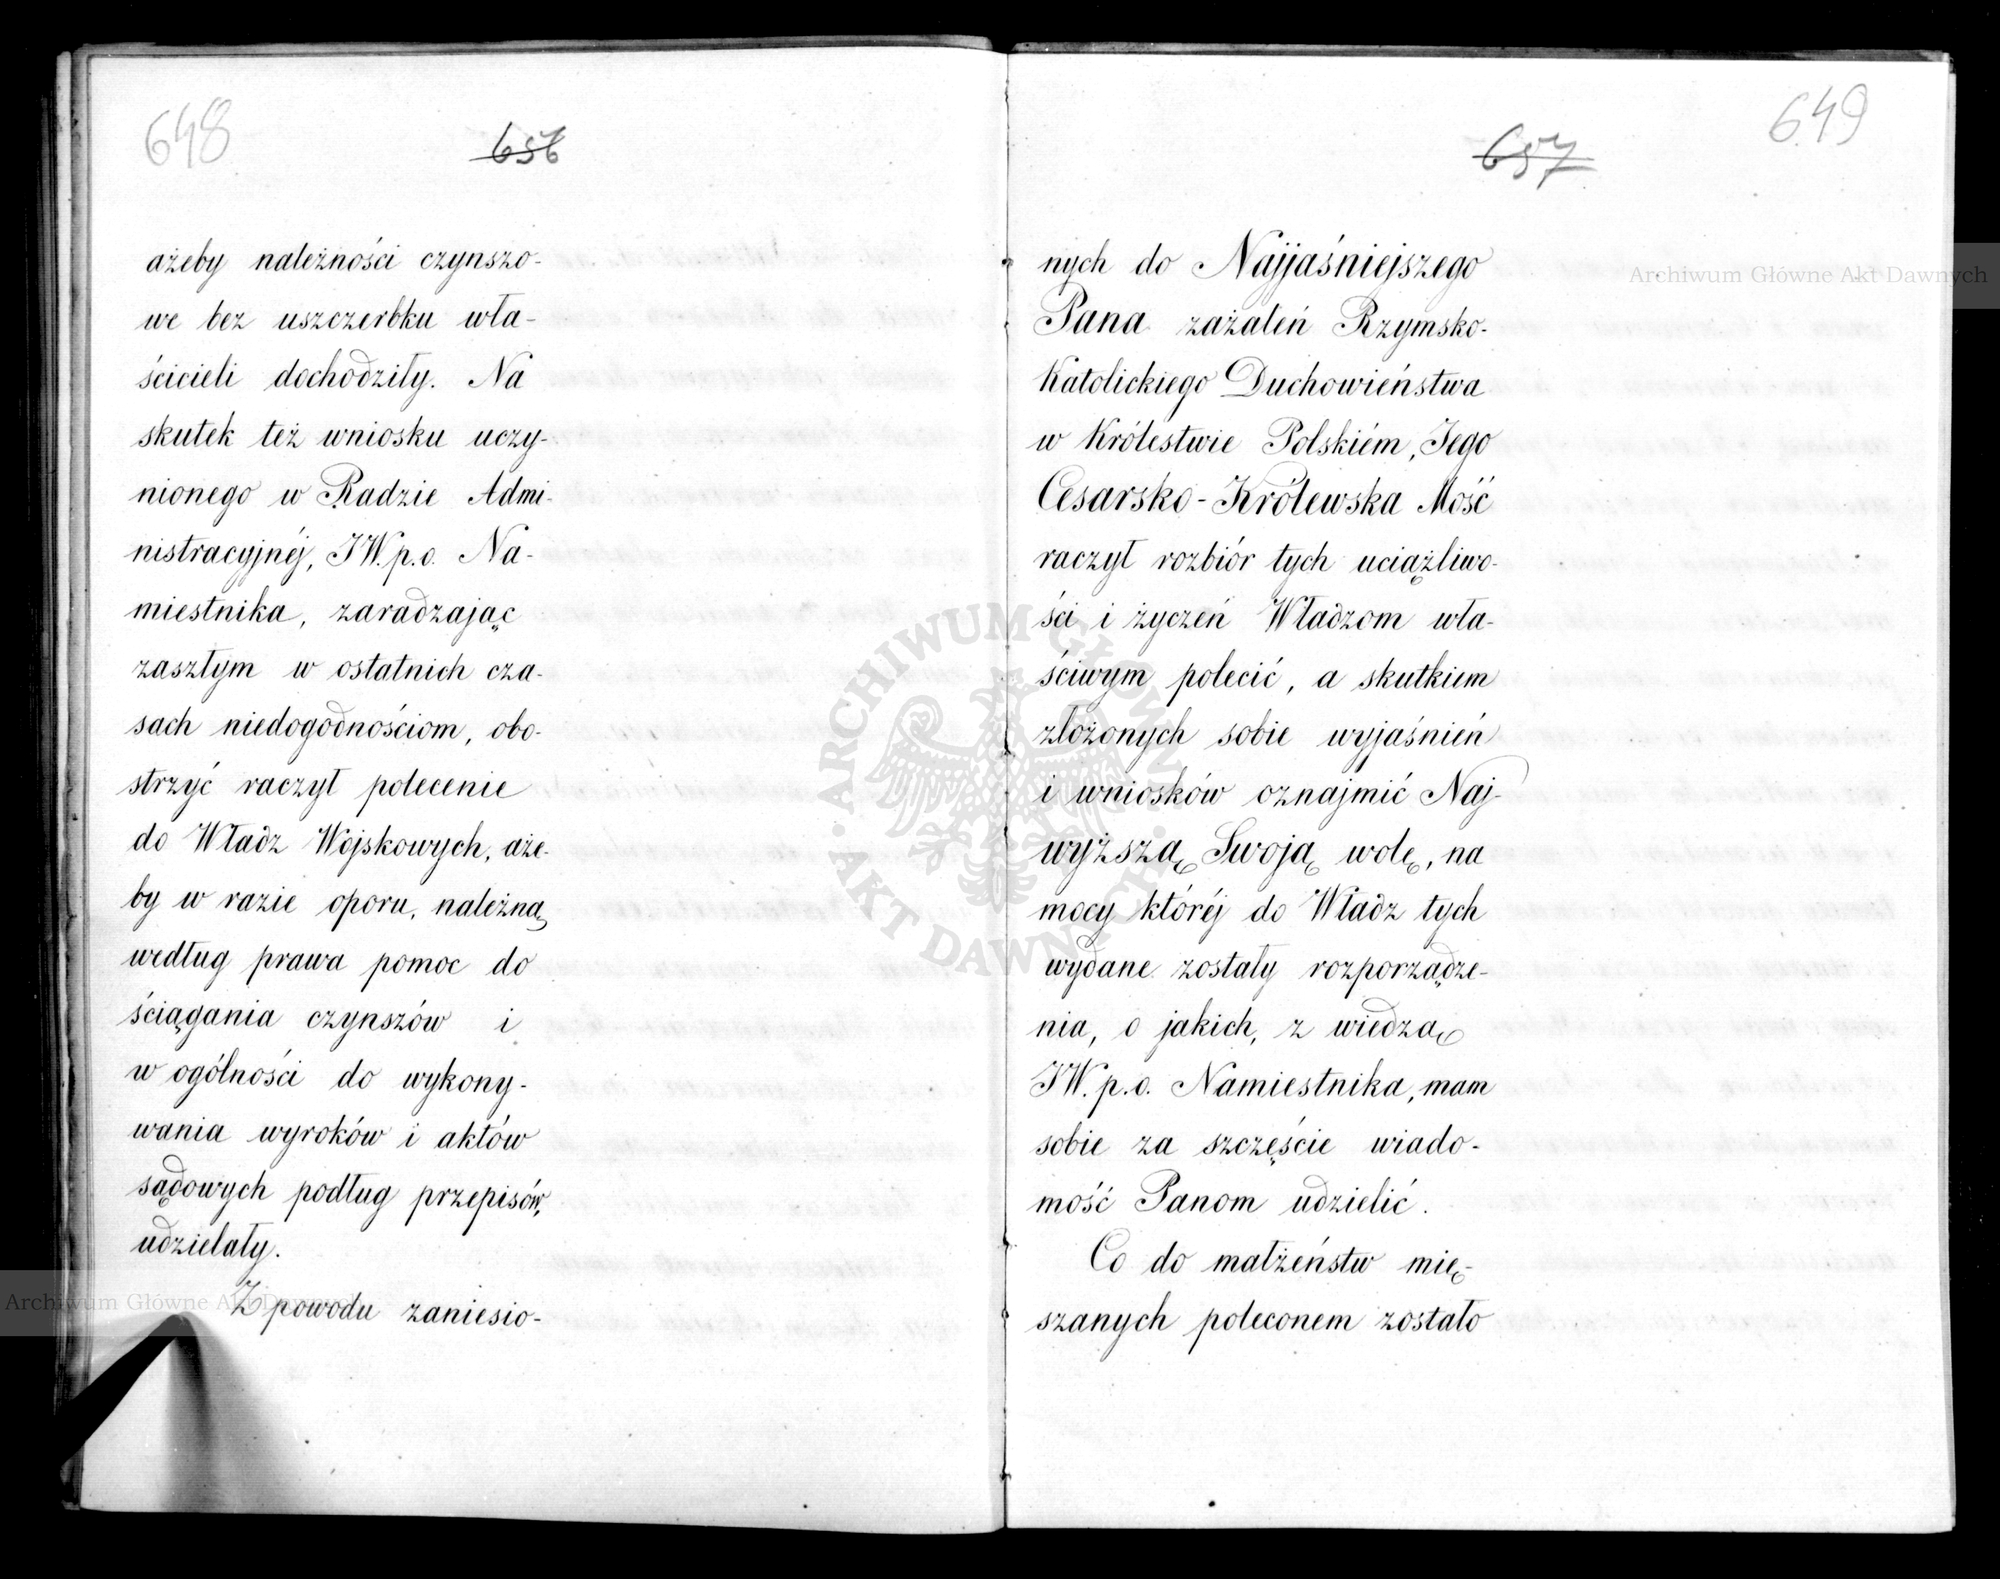 648
656
ażeby należności czynszo-
we bez uszczerbku wła-
ścicieli dochodziły. Na
skutek też wniosku uczy-
nionego w Radzie Admi-
nistracyjnéj, JW. p.o. Na-
miestnika, zaradzając
zaszłym w ostatnich cza-
sach niedogodnościom, obo-
strzyć raczył polecenie
do Władz Wojskowych, aże-
by w razie oporu, należną
według prawa pomoc do
ściągania czynszów i
w ogólności do wykony-
wania wyroków i aktów
sądowych podług przepisów,
udzielały.
Z powodu zaniesio-
649
657
nych do Najjaśniejszego
Pana zażaleń Rzymsko-
Katolickiego Duchowieństwa
w Królestwie Polskiém, Jego
Cesarsko-Królewska Mość
raczył rozbiór tych uciążliwo-
ści i życzeń Władzom wła-
ściwym polecić, a skutkiem
złożonych sobie wyjaśnień
i wniosków oznajmić Naj-
wyższą Swoją wolę, na
mocy któréj do Władz tych
wydane zostały rozporządze-
nia, o jakich, z wiedzą
JW. p.o. Namiestnika, mam
sobie za szczęście wiado-
mość Panom udzielić.
Co do małżeństw mię-
szanych poleconem zostało
Archiwum Główne Akt Dawnych
Archiwum Główne Akt Dawnych
ARCHIWUM GŁÓWNE
AKT DAWNYCH